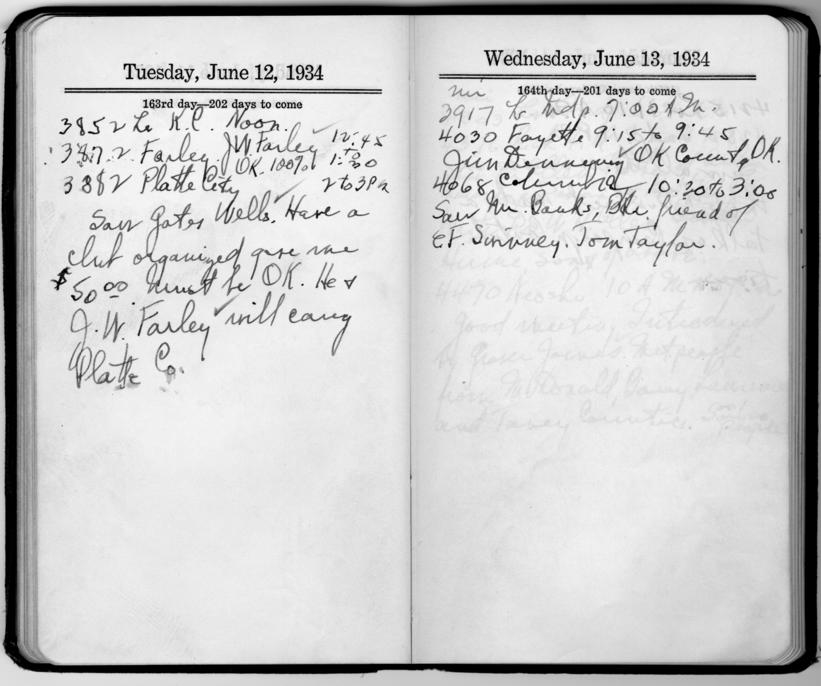 Tuesday, June 12, 1934
163rd day—202 days to come
3852 Lv K.C. Noon.
387.2 Farley J.W. Farley 12:45
OK. 100% 1:30
3882 Platte City 2 to 3 P.M
Saw Gates Wells. Have a
club organized gave me
$50.00 must be OK. He &
J.W. Farley will carry
Platte Co.
Wednesday, June 13, 1934
164th day—201 days to come
mi
3917 Lv Indp. 7:00 A.M.
4030 Fayette 9:15 to 9:45
Jim Denneny OK County OK.
4068 Columbia 10:20 to 3:00
Saw Mr. Banks, Bkr. friend of
E.F. Swinney. Tom Taylor.